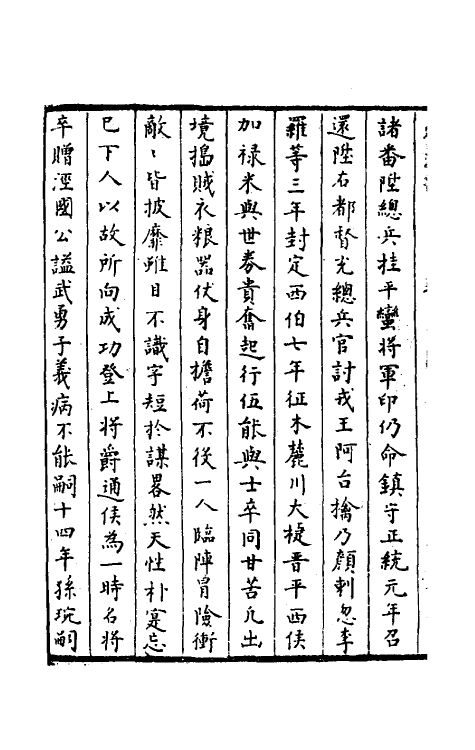 諸番陞總兵挂平蠻將軍印仍命鎮守正統元年召
還陞右都督充總兵官討戎王阿台擒乃顏剌忽李
羅等三年封定西伯七年征木麓川大捷晋平西侯
加禄米與世券貴奮起行伍能與士卒同甘苦凡出
境搗賊衣粮器仗身自擔荷不役一人臨陣冐險衝
敵〻皆披靡雖目不識字短於謀畧然天性朴寔忘
已下人以故所向成功登上將爵通侯為一時名將
卒贈涇國公謚武勇子義病不能嗣十四年孫琬嗣